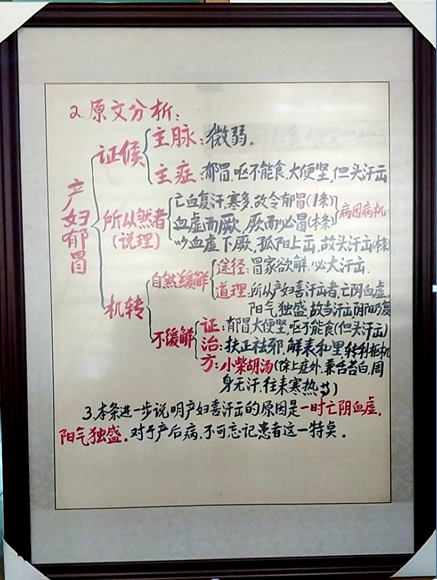 2. 原文分析:
产妇郁冒
证候
主脉:微弱.
主症:郁冒,呕不能食,大便坚,但头汗出
所从然者
(说理)
亡血复汗,寒多,故令郁冒(1条)
血虚而厥,厥而必冒(本条)
血虚下厥,孤阳上出,故头汗出(本条)
病因病机
机转
自然缓解
途径:冒家欲解,必大汗出.
道理:所从产妇喜汗出者,亡阴血虚,
阳气独盛,故当汗出阴阳乃复
不缓解
证:郁冒大便坚,呕不能食(但头汗出)
治:扶正祛邪,解表和里转利枢机
方:小柴胡汤(除上症外,兼舌苔白,周
身无汗,往来寒热
3.本条进一步说明产妇喜汗出的原因是一时亡阴血虚,
阳气独盛.对于产后病.不可忘记患者这一特点.